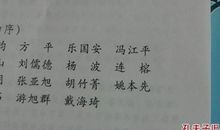 序）
方 平 乐国安 冯江平
山 刘儒德 杨 波 连 榕
张亚旭 胡竹菁 姚本先
游旭群 戴海琦